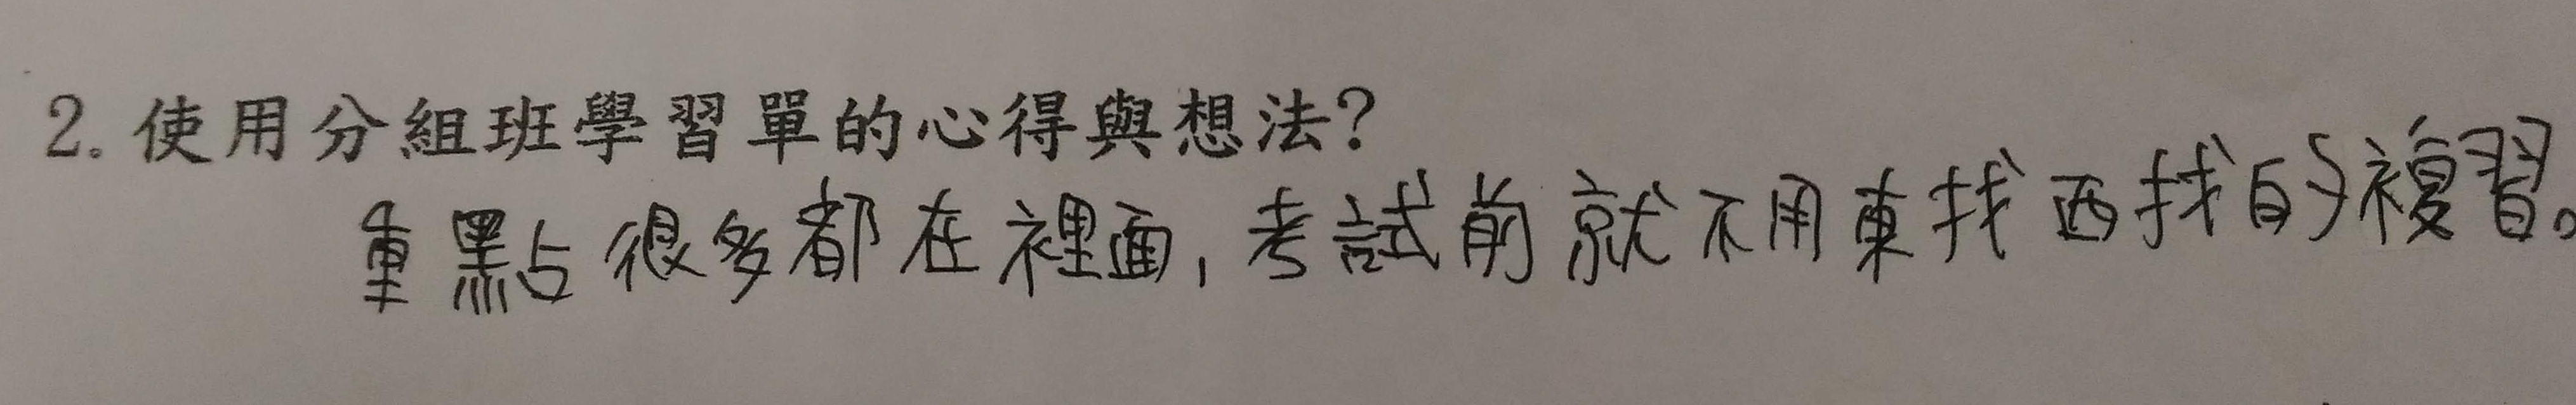 2. 使用分組班學習單的心得與想法?
重點很多都在裡面,考試前就不用東找西找的複習。